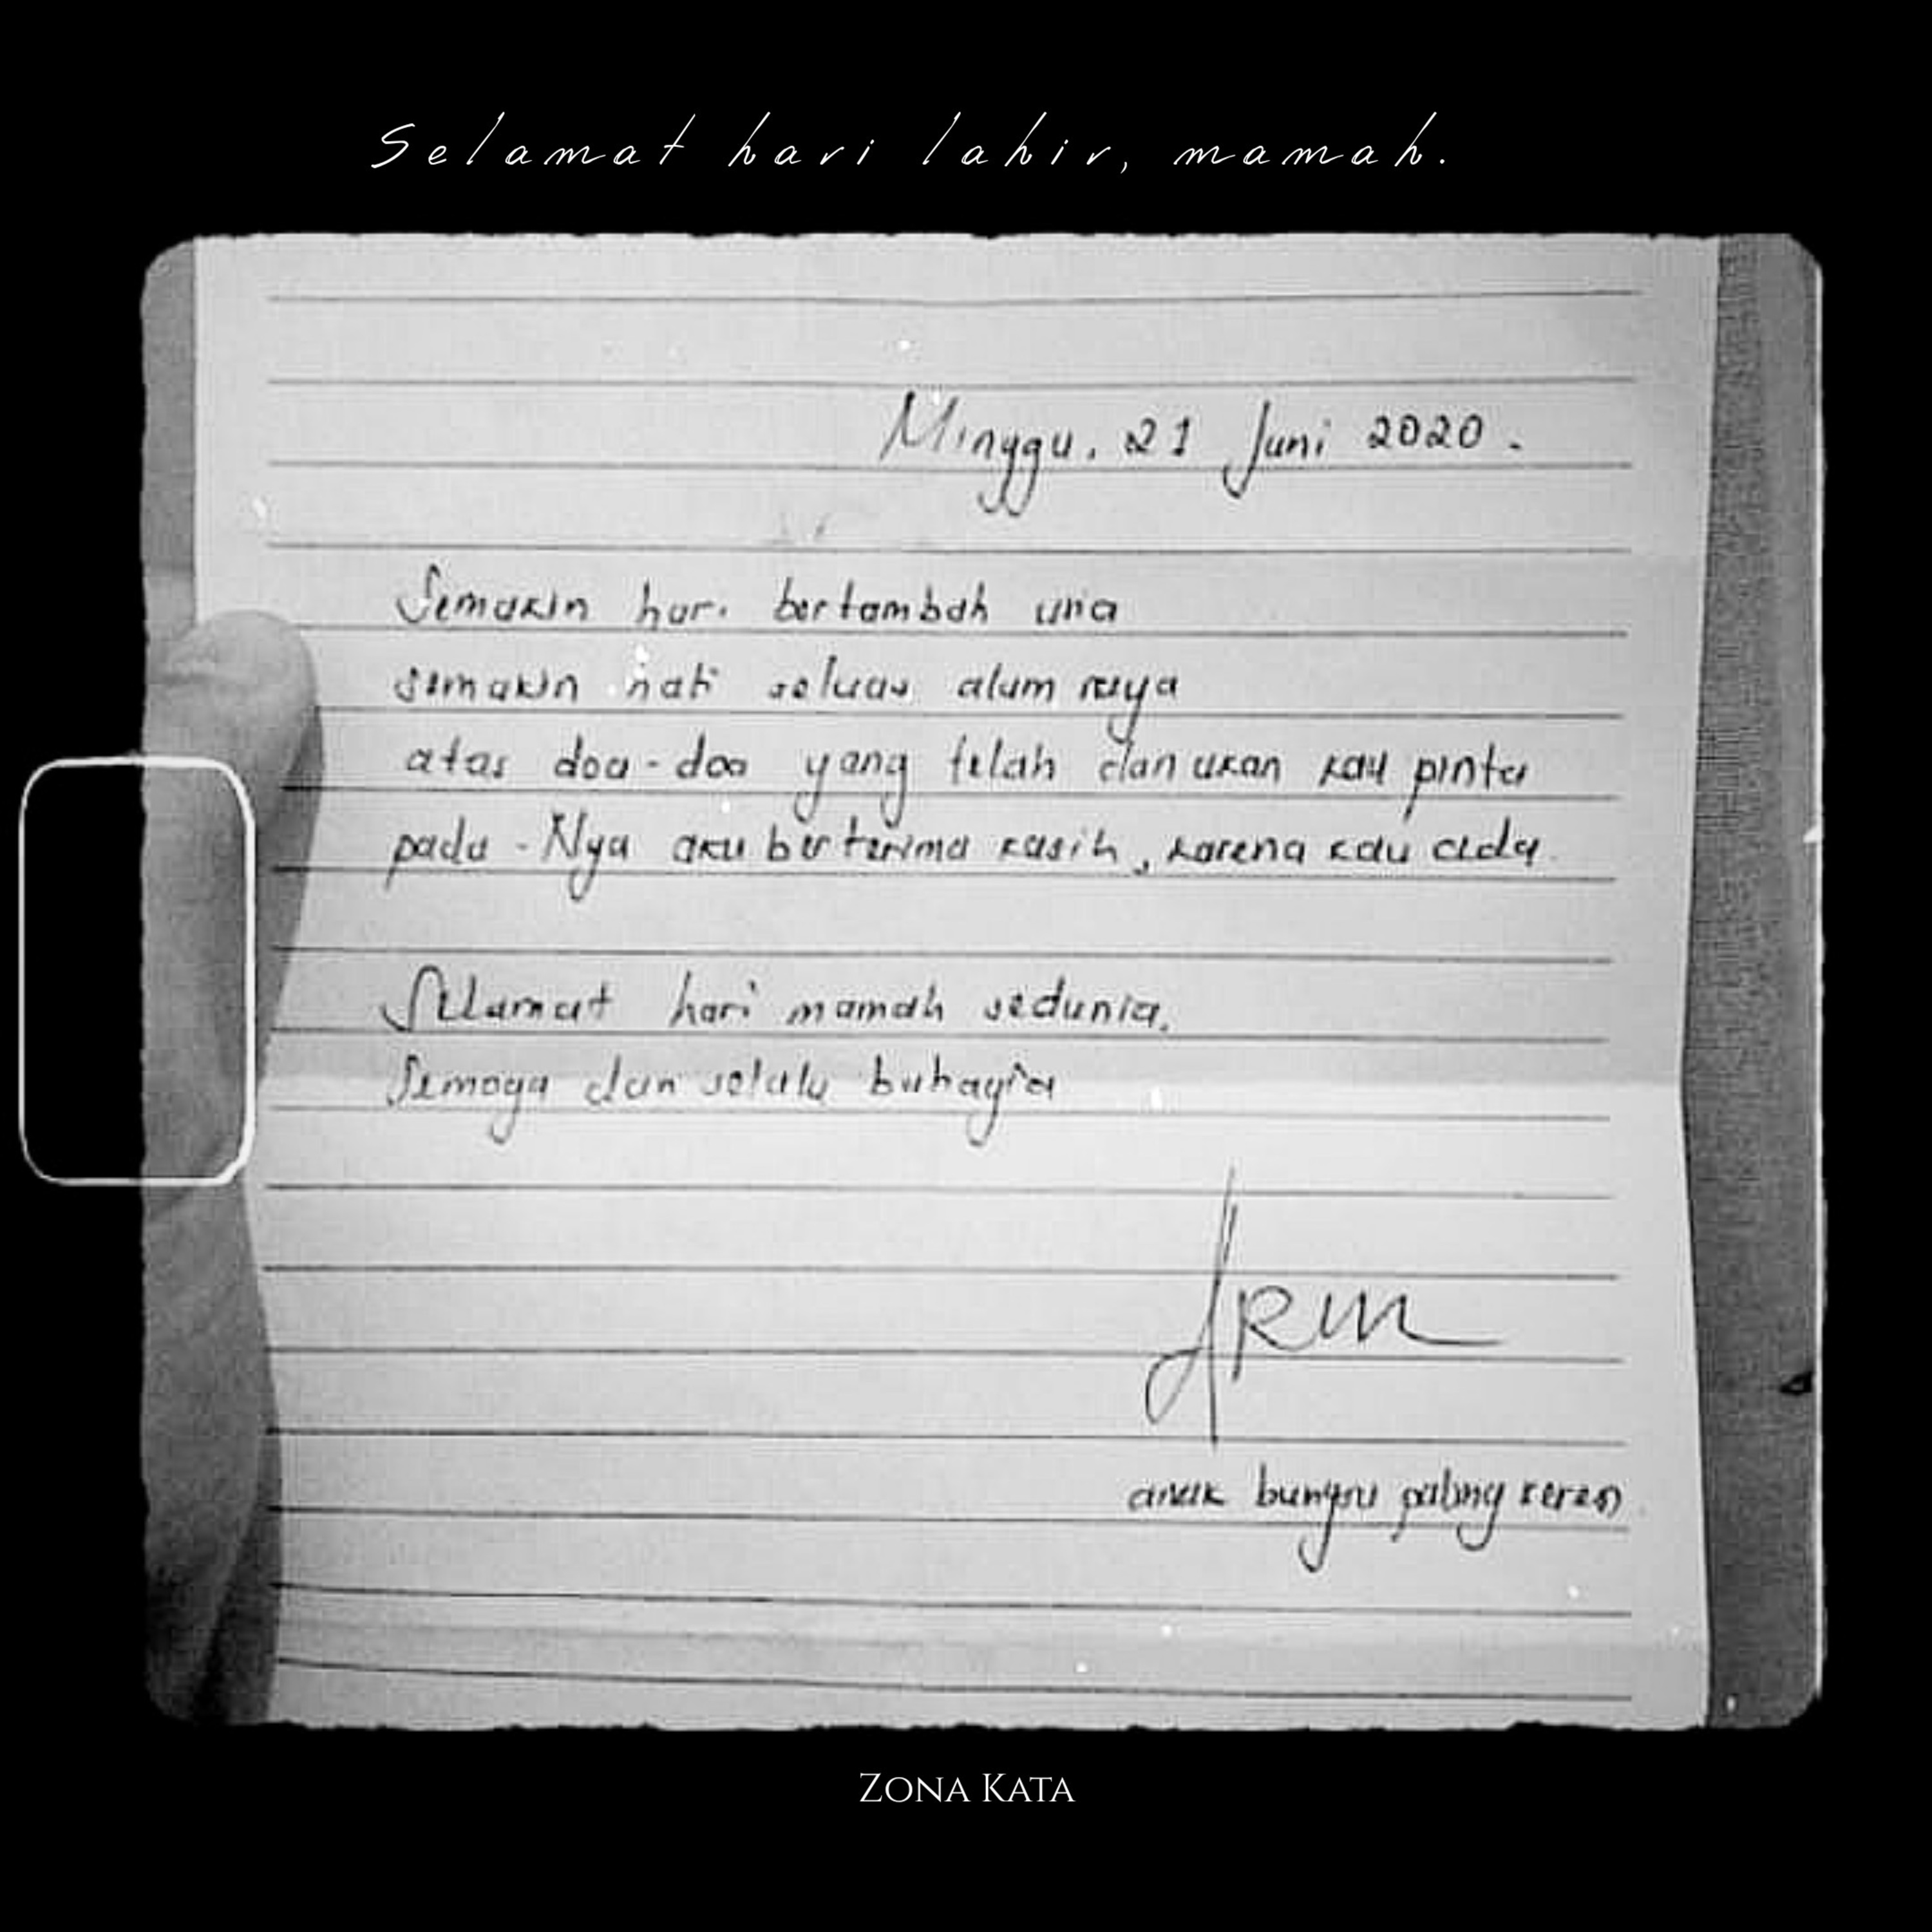 Selamat hari lahir, mamah.
Minggu, 21 Juni 2020.
Semakin hari bertambah usia
semakin hati seluas alam raya
atas doa-doa yang telah dan akan kau pinta
pada-Nya aku berterima kasih, karena kau ada.
Selamat hari mamah sedunia.
Semoga dan selalu bahagia
anak bungsu paling keren
ZONA KATA